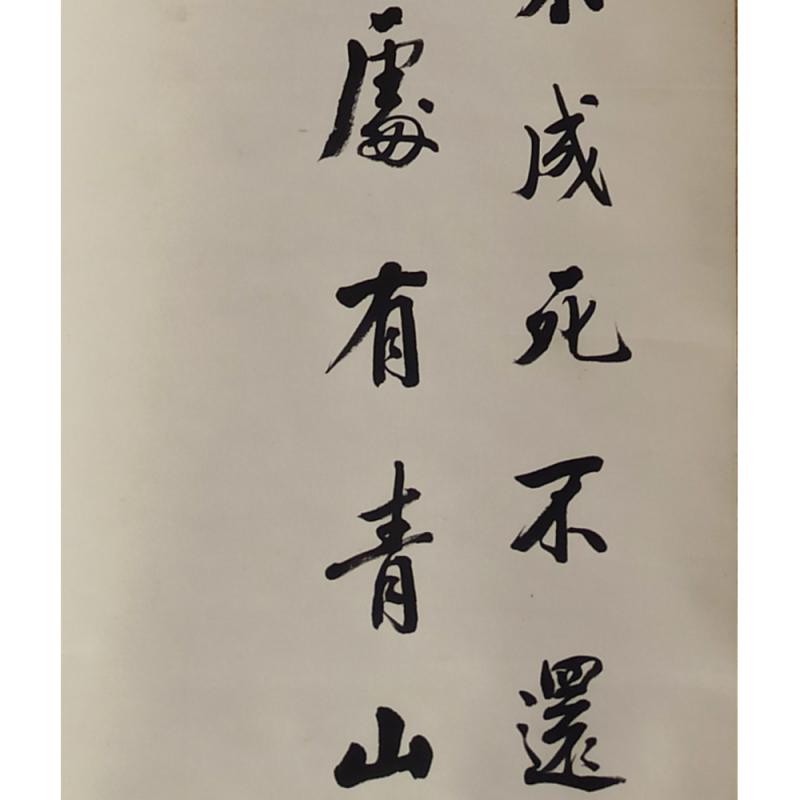 成死不還
處有青山